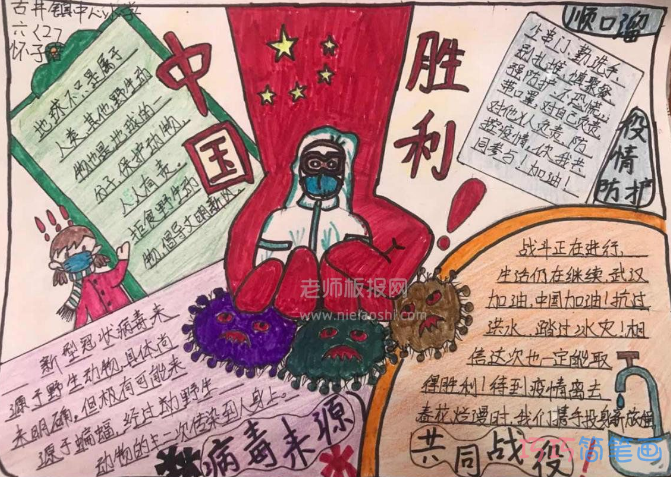 古井镇中心小学
六〈2〉
中国
胜利！
顺口溜
少串门，勤洗手，
别扎堆，惧聚家
强防护，不恐慌
带口罩，对自己负责
对他人负责，防
控疫情，你我共
同参与！加油！
疫情
防护
地球不只是属于
人类，其他野生动
物也是地球的一
份子，保护动物，
人人有责。
拒食野生动
物，倡导文明新风。
新型冠状病毒来
源于野生动物，具体尚
未明确，但极有可能来
源于蝙蝠，经过动野生
动物的主一次传染到人身上。
病毒来源
老师板报网
www.niefaoshi.com
战斗正在进行，
生活仍在继续，武汉
加油，中国加油！抗过
洪水，踏过冰灾！相
信这次也一定能取
得胜利！待到疫情离去
春花烂漫时，我们携手
共同战役！
简笔画